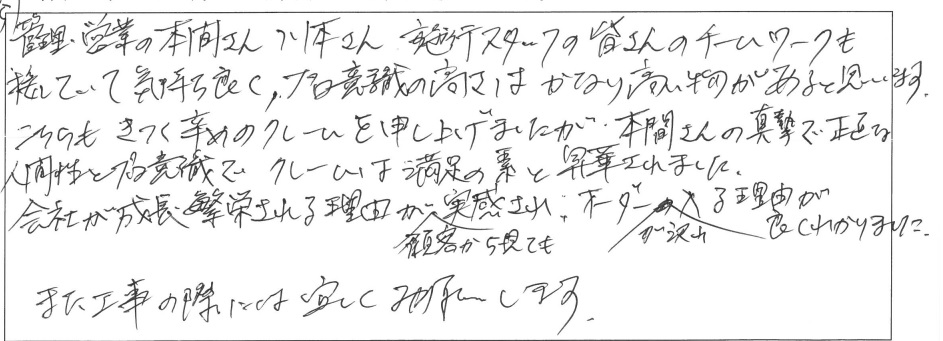 管理・営業の本間さん 小本さん 施行スタッフの皆さんのチームワークも
極していて気持ち良く,プロ意識の高さは かなり高いものがあると思います.
こちらも きつく辛めのクレームを申し上げましたが、本間さんの真摯で正直な
人間性とプロ意識で クレームは満足の素と昇華されました.
会社が成長繁栄される理由が実感され, オーダーが沢山入る理由が
顧客から見ても
良くわかりました.
また工事の際には宜しくお願いします.